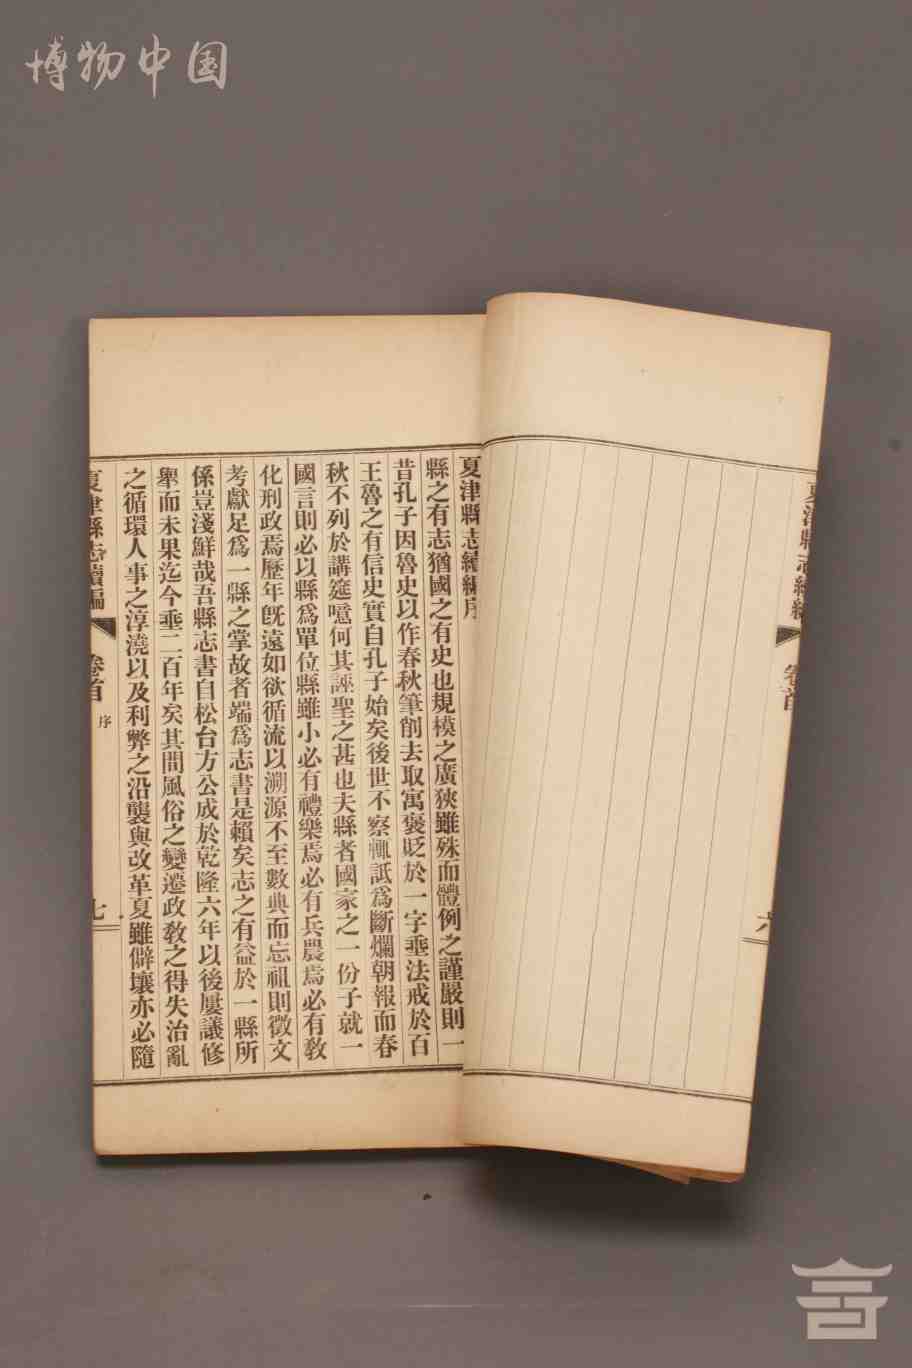 博物中国
夏津縣志續編
卷首
六
夏津縣志續編序
縣之有志猶國之有史也規模之廣狹雖殊而體例之謹嚴則一
昔孔子因魯史以作春秋筆削去取寓褒貶於一字垂法戒於百
王魯之有信史實自孔子始矣後世不察輒詆爲斷爛朝報而春
秋不列於講筵噫何其誣聖之甚也夫縣者國家之一份子就一
國言則必以縣爲單位縣雖小必有禮樂焉必有兵農焉必有敎
化刑政焉歷年旣遠如欲循流以溯源不至數典而忘祖則徵文
考獻足爲一縣之掌故者端爲志書是賴矣志之有益於一縣所
係豈淺鮮哉吾縣志書自松台方公成於乾隆六年以後屢議修
舉而未果迄今垂二百年矣其間風俗之變遷政敎之得失治亂
之循環人事之淳澆以及利弊之沿襲與改革夏雖僻壤亦必隨
夏津縣志續編
卷首
序
七